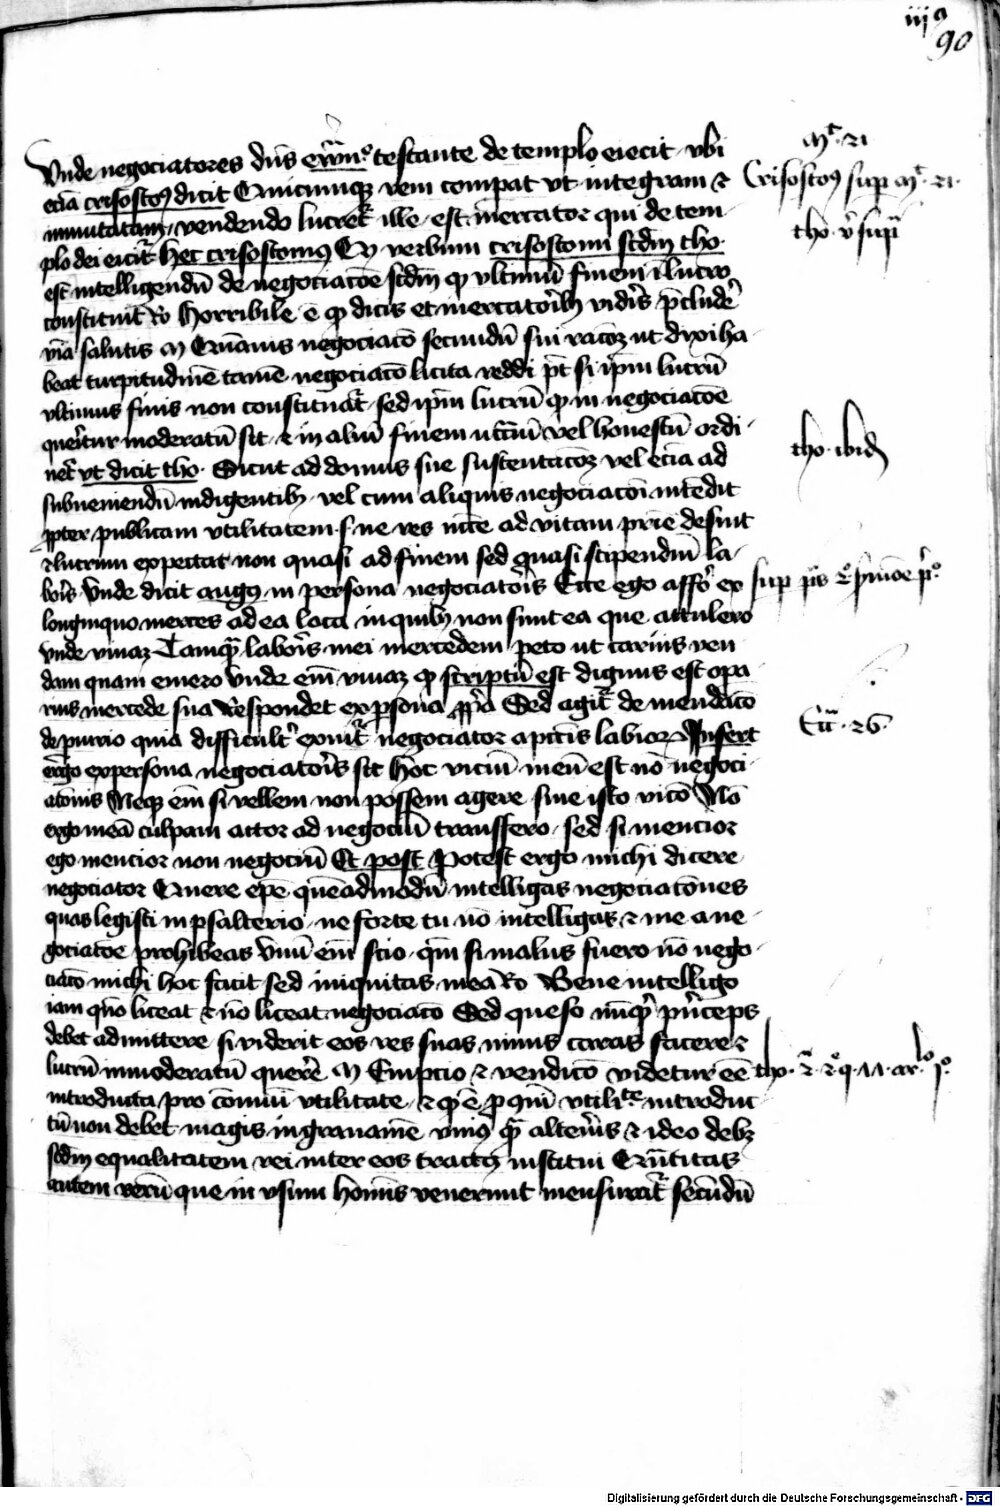 iij 90
Vnde negociatores dns ewan° testante de templo eiecit vbi
ecia crisosto9 dicit Quicumqz rem compat vt integram &
immutatam vendendo lucret² ille est mercator qui de tem
plo dei eicit² hec crisostom9 Q verbum crisostomi scdm tho.
est intelligendu de negociacoe scdm qp vltimu finem i lucro
constituit Ro horribile e qp dicis et mercatorib9 vidis pcluder
via salutis M Quauis negociaco secundu sui racoz ut dixi ha
beat turpitudine tame negociaco licita reddi pt si ipm lucru
vltimus finis non constituat² sed ipm lucru qp in negociacoe
queritur moderatu sit & in aliu finem vel honestu ordi
net² vt dicit tho. Sicut ad domus sue sustentacoz vel ecia ad
subueniendu indigentib9 vel cum aliquis negociacoi intedit
ppter publicam vtilitatem s ne res ad vitam prie desint
& lucrum expectat non quasi ad finem sed quasi stipendiu la
boris Vnde dicit augus in persona negociatoris Ecce ego affero ex
longinquo merces ad ea loca in quib9 non sunt ea que attulero
vnde viuaz Tamqua laboris mei mercedem peto ut carius ven
dam quam emero vnde em viuaz qp scriptu est dignus est opa
rius mercede sua Respondet ex psona ppa Sed agit² de mendaco
de piurio quia difficult² exuit² negociator a pctis labiorz Insert
ergo ex persona negociatoris sit hoc viciu meu est no negoci
atonis Neqz em si vellem non possem agere sine isto vico No
ergo mea culpam actor ad negociu transfero sed si mencior
ego mencior non negociu Et post Potest ergo michi dicere
negociator Quere epe queadmodu intelligas negociatones
quas legisti in psalterio ne forte tu no intelligas & me a ne
gociacoe prohibeas vnu em scio qm si malus fuero no nego
ciaco michi hoc facit sed iniquitas mea Ro Bene intelligo
iam quo liceat & no liceat negociaco Sed queso nuqd princeps
debet admittere si viderit eos res suas nimis caras facere &
lucru inmoderatu querere M Empcio & vendico videtur ee
introducta pro comuni vtilitate & qp e p qmi vtilite introduc
tu non debet magis in grauame vni9 qua alterius & ideo debz
scdm equalitatem rei inter eos tractus institui Quntitas
autem reru que in vsum hominis venerunt mensurat² secundu
M^t 21
Crisosto9 sup M^t 21
tho. v sup
tho. ibid
sup ps
Ecc 26
tho. 2 2e q 77 ar